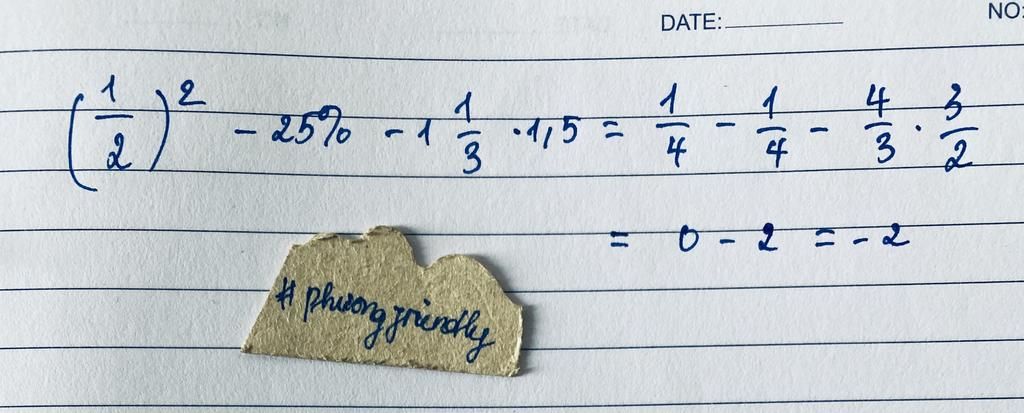 DATE: NO:
(1/2)² - 25% - 1 1/3 · 1,5 = 1/4 - 1/4 - 4/3 · 3/2
= 0 - 2 = -2
# phuongfriendly